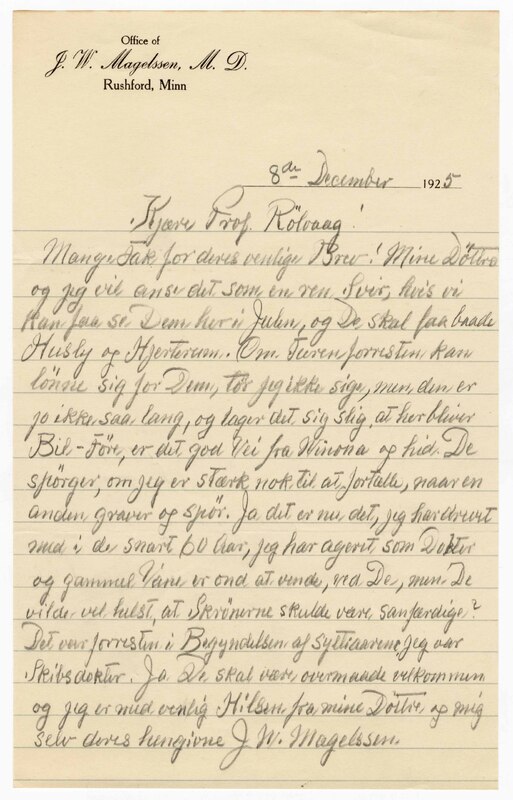 Office of
J. W. Magelssen, M. D.
Rushford, Minn
8de December 1925
Kjære Prof. Rölvaag!
Mange Tak for deres venlige Brev! Mine Döttre
og jeg vil anse det som en ren Svir, hvis vi
kan faa se Dem her i Julen, og De skal faa baade
Husly og Hjerterum. Om Turen forresten kan
lönne sig for Dem, tör jeg ikke sige, men den er
jo ikke saa lang, og lager det sig slig, at her bliver
Bil-Före, er det god Vei fra Winona og hid. De
spörger, om jeg er stærk nok til at fortælle, naar en
anden graver og spör. Ja det er nu det, jeg har drevet
med i de snart 60 Aar, jeg har agerit som Doktor
og gammel Vane er ond at vende, ved De, men De
vilde vel helst, at Skrönerne skulde være sanfærdige?
Det var forresten i Begyndelsen af syttiaarene, jeg var
Skibsdoktor. Ja De skal være overmaade velkommen
og jeg er med venlig Hilsen fra mine Döttre og mig
selv deres hengivne J. W. Magelssen.